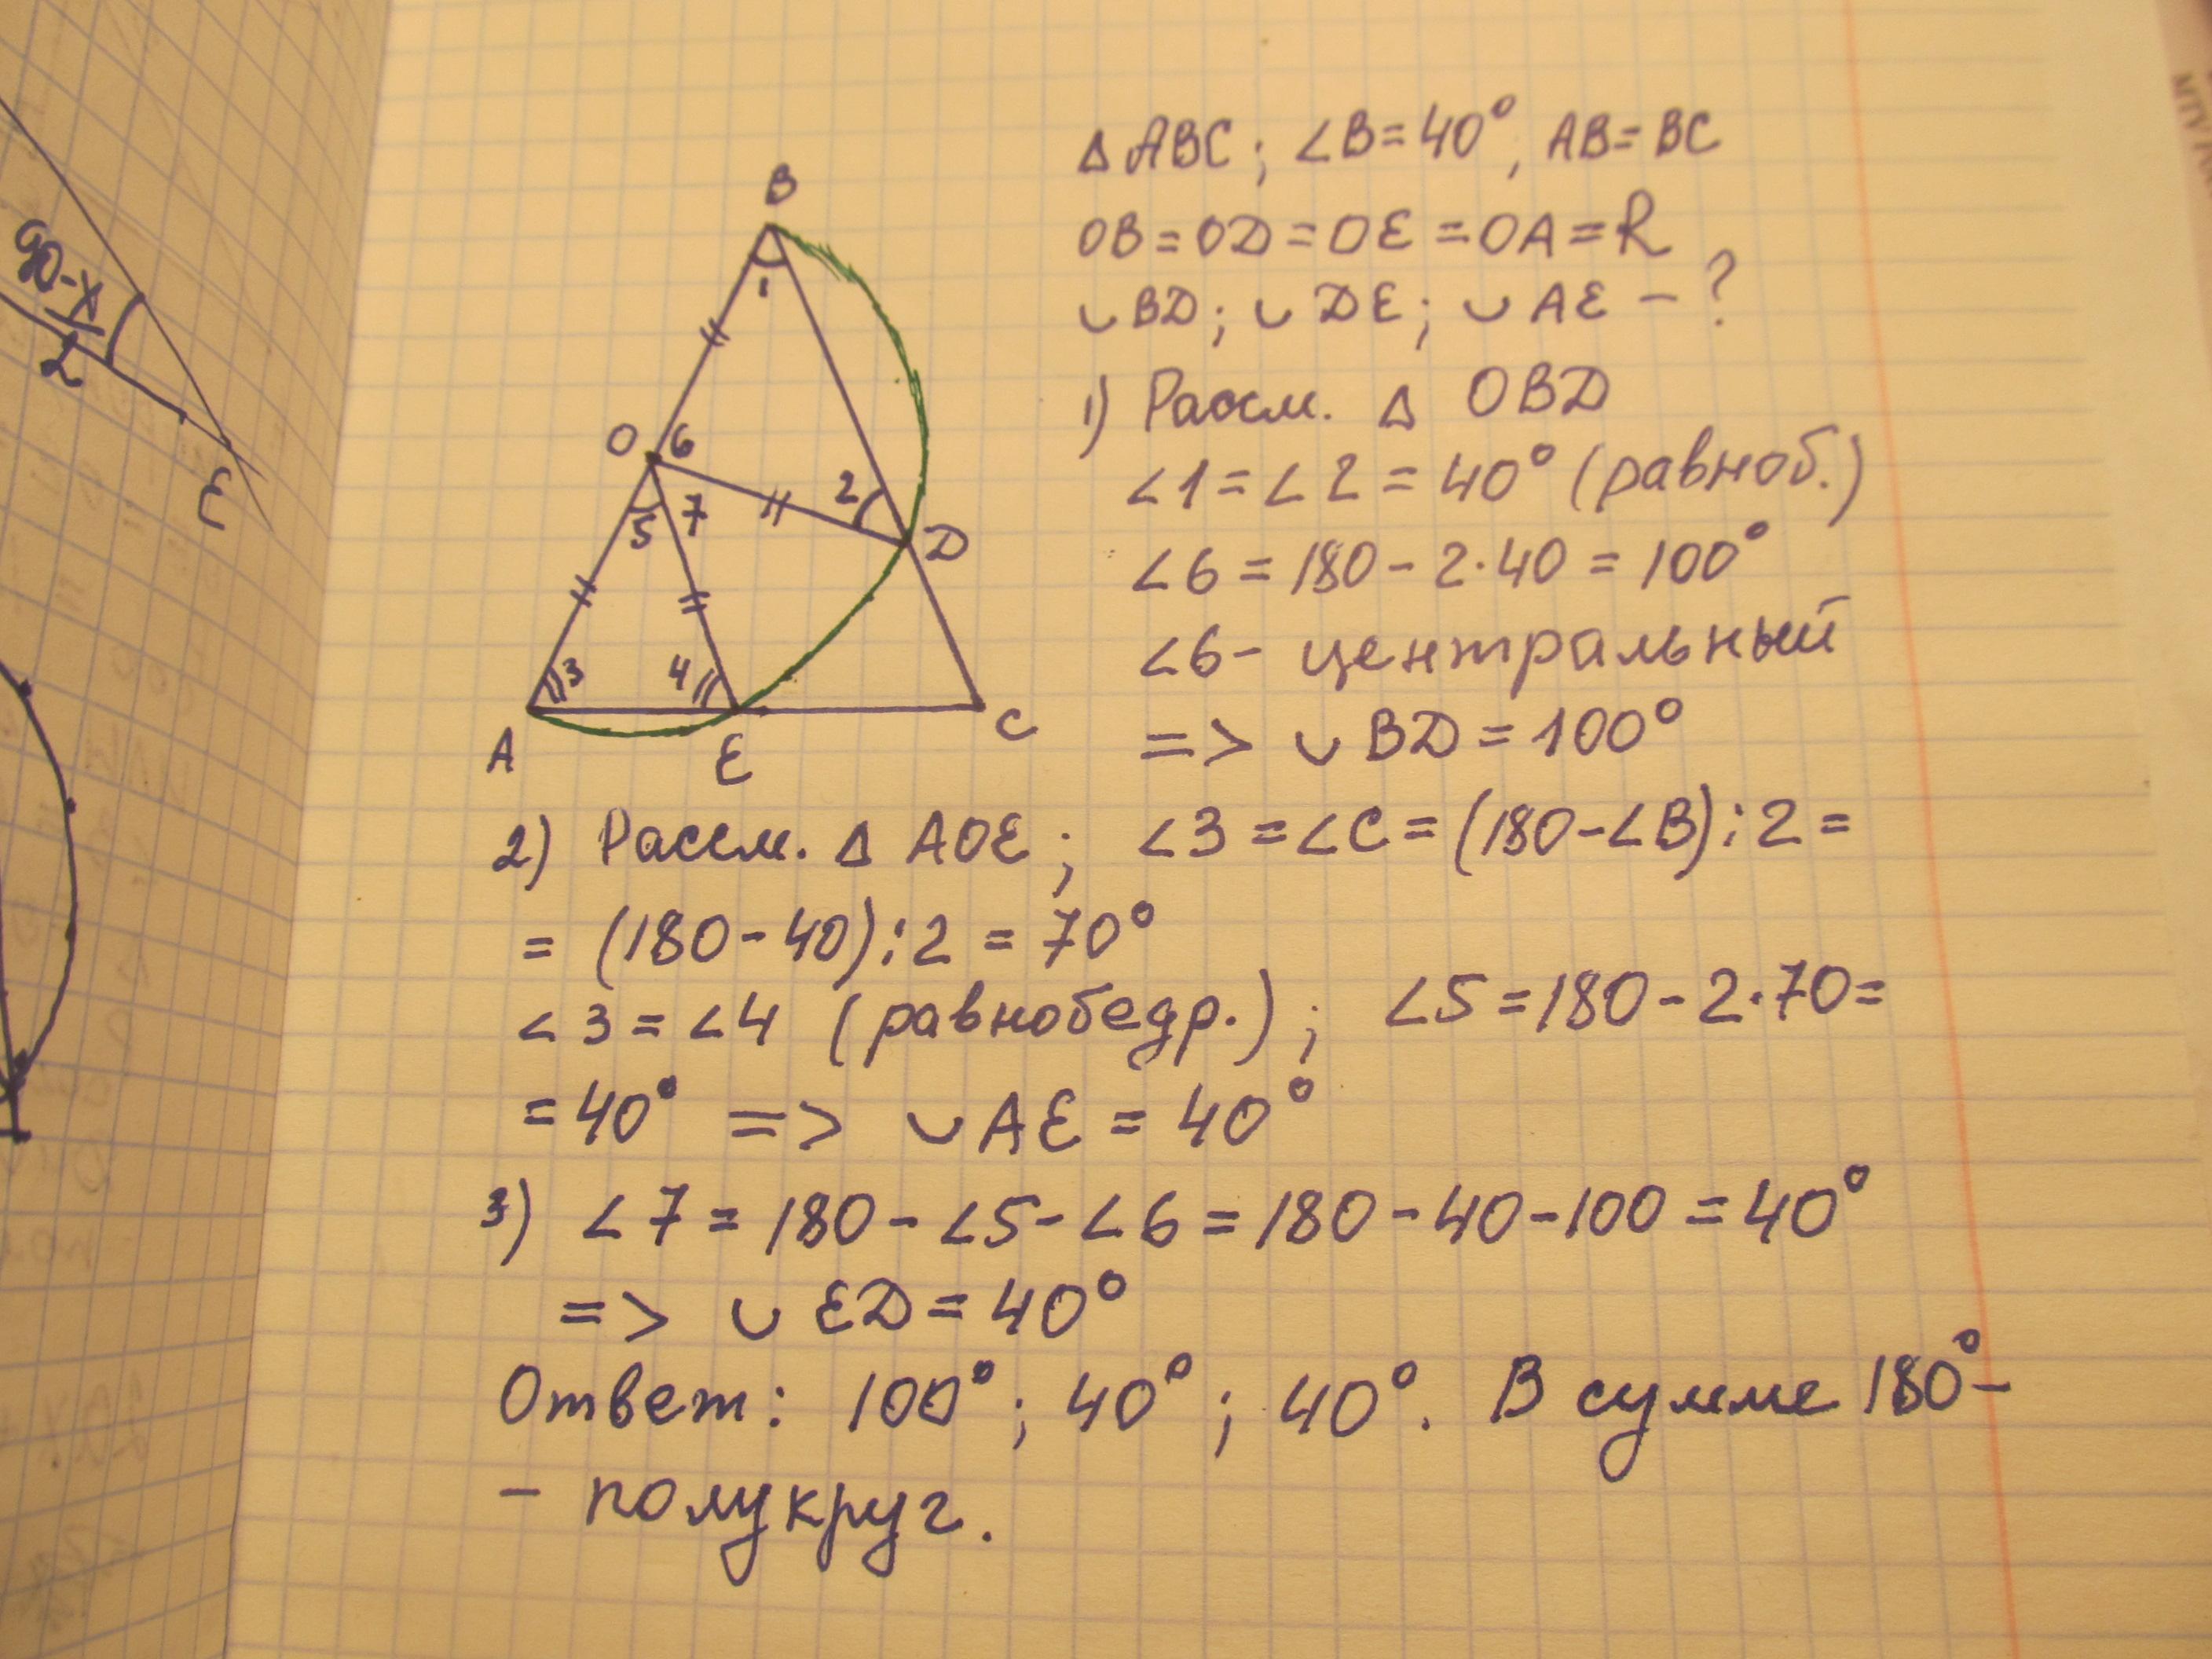 90-x
2
E
B
O
6
5
7
2
1
D
3
4
A
E
C
∆ ABC; ∠B=40°, AB=BC
OB=OD=OE=OA=R
∪BD; ∪DE; ∪AE - ?
1) Рассм. ∆ OBD
∠1=∠2=40° (равноб.)
∠6=180-2·40=100°
∠6- центральный
=> ∪BD=100°
2) Рассм. ∆ AOE; ∠3=∠C=(180-∠B):2=
=(180-40):2=70°
∠3=∠4 (равнобедр.); ∠5=180-2·70=
=40° => ∪AE=40°
3) ∠7=180-∠5-∠6=180-40-100=40°
=> ∪ED=40°
Ответ: 100°; 40°; 40°. В сумме 180°-
- полукруг.